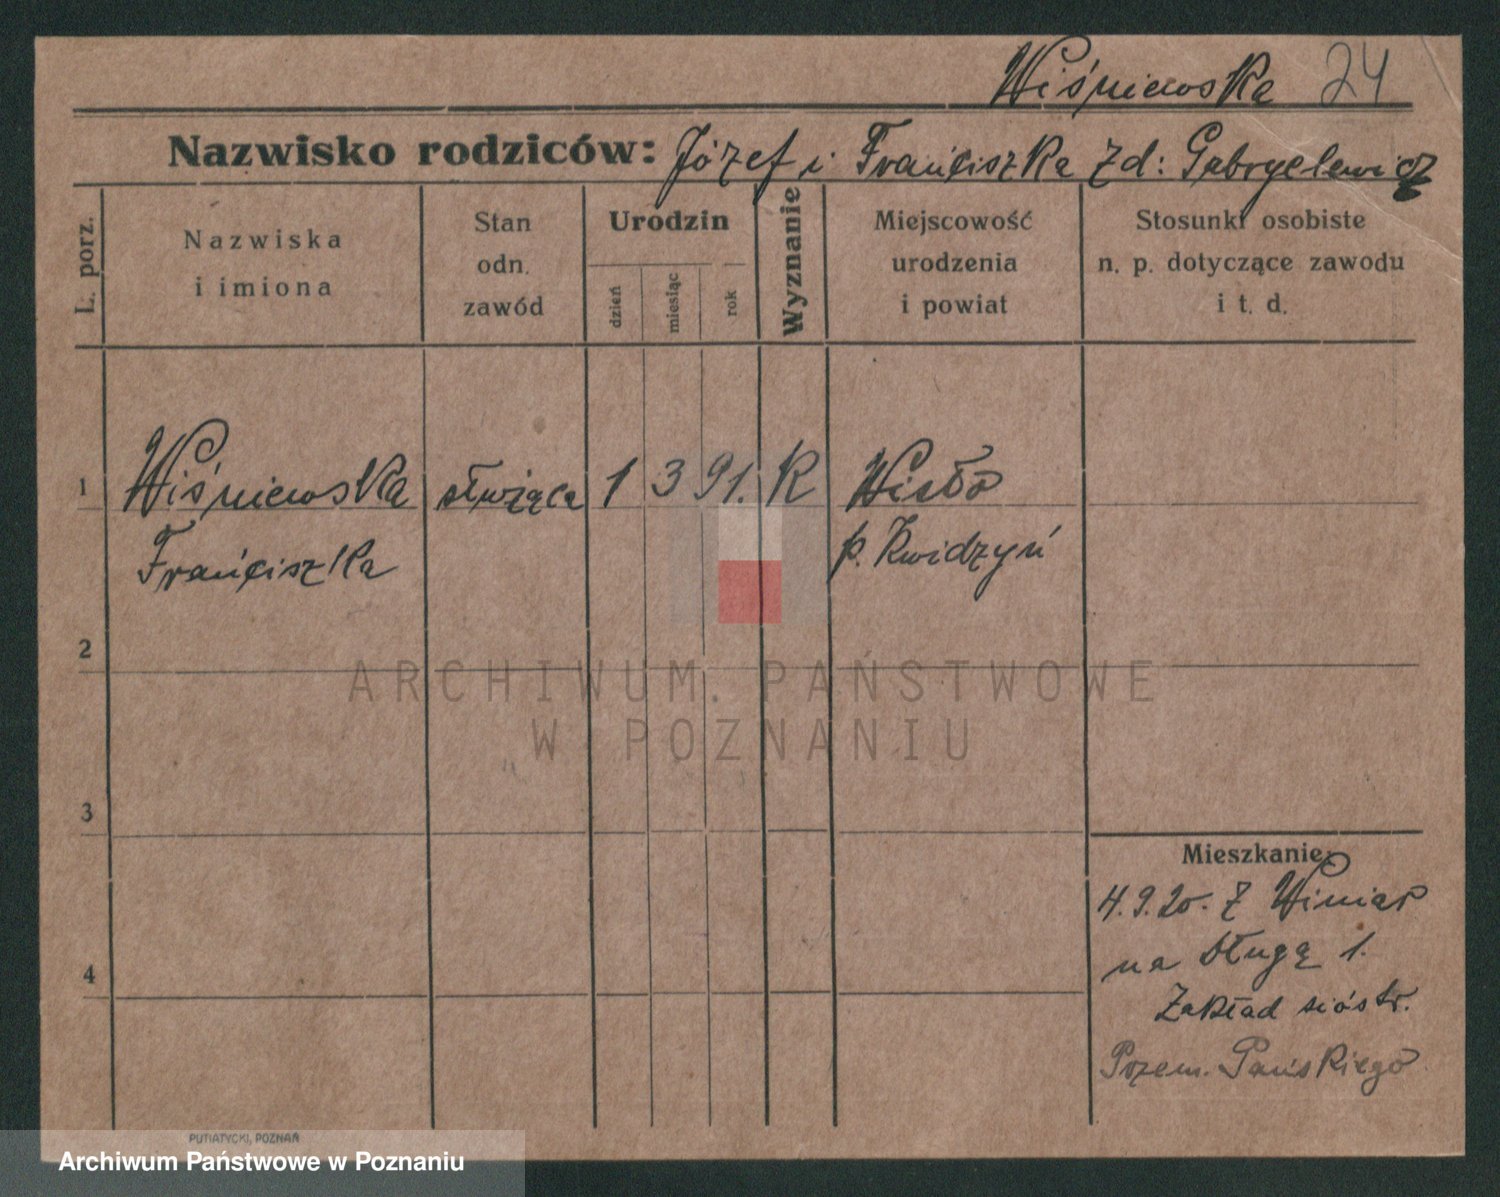 Wiśniewska 24
Nazwisko rodziców: Józef i Franciszka zd: Gabryelewicz
L. porz.
Nazwiska
i imiona
Stan
odn.
zawód
Urodzin
dzień
miesiąc
rok
Wyznanie
Miejscowość
urodzenia
i powiat
Stosunki osobiste
n. p. dotyczące zawodu
i t. d.
1 Wiśniewska służąca 1 3 91. K
Franciszka p. Kwidzyń
2
ARCHIWUM PAŃSTWOWE
W POZNANIU
3
Mieszkanie:
4.9.20. Z Winiar
na Długą 1.
4
Zakład sióstr.
Przem. Pańskiego
PUTIATYCKI, POZNAŃ
Archiwum Państwowe w Poznaniu